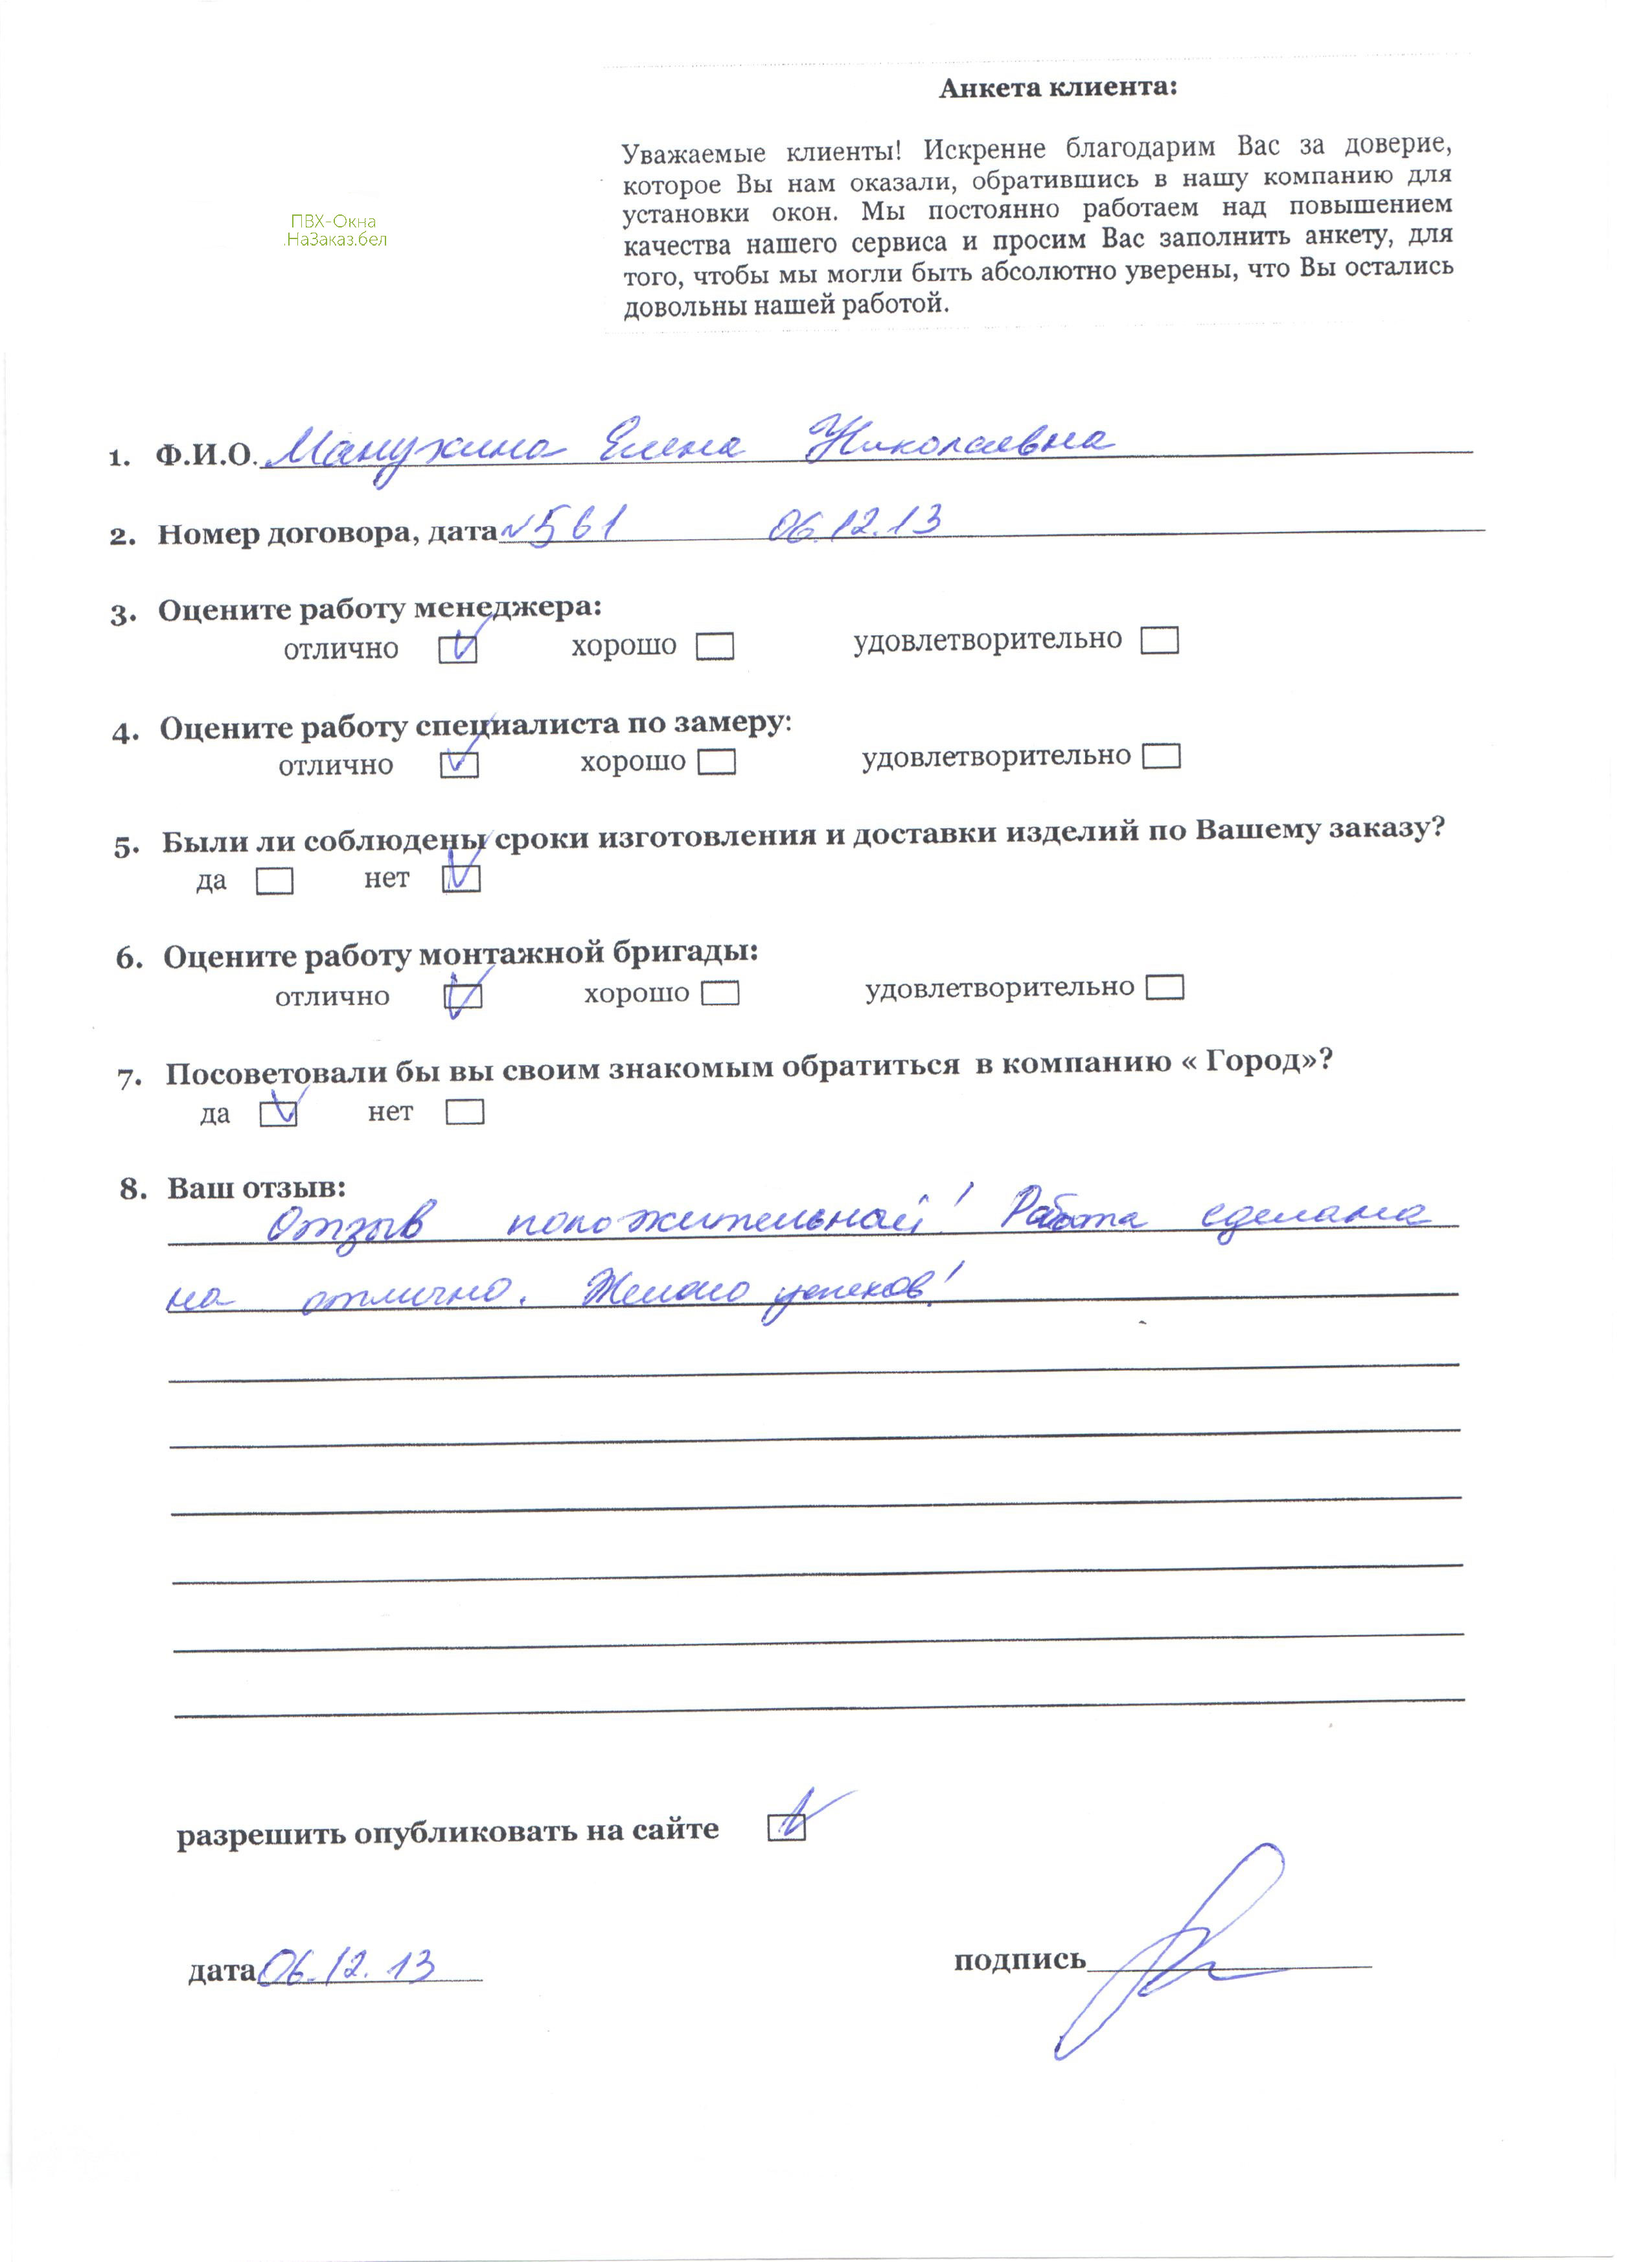 Анкета клиента:
Уважаемые клиенты! Искренне благодарим Вас за доверие,
которое Вы нам оказали, обратившись в нашу компанию для
установки окон. Мы постоянно работаем над повышением
качества нашего сервиса и просим Вас заполнить анкету, для
того, чтобы мы могли быть абсолютно уверены, что Вы остались
довольны нашей работой.
ПВХ-Окна
.НаЗаказ.бел
1. Ф.И.О. Манухина Елена Николаевна
2. Номер договора, дата №561 06.12.13
3. Оцените работу менеджера:
отлично хорошо удовлетворительно
4. Оцените работу специалиста по замеру:
отлично хорошо удовлетворительно
5. Были ли соблюдены сроки изготовления и доставки изделий по Вашему заказу?
да нет
6. Оцените работу монтажной бригады:
отлично хорошо удовлетворительно
7. Посоветовали бы вы своим знакомым обратиться в компанию « Город»?
да нет
8. Ваш отзыв:
Отзыв положительный! Работа сделана
на отлично. Желаю успехов!
разрешить опубликовать на сайте
дата 06.12.13 подпись